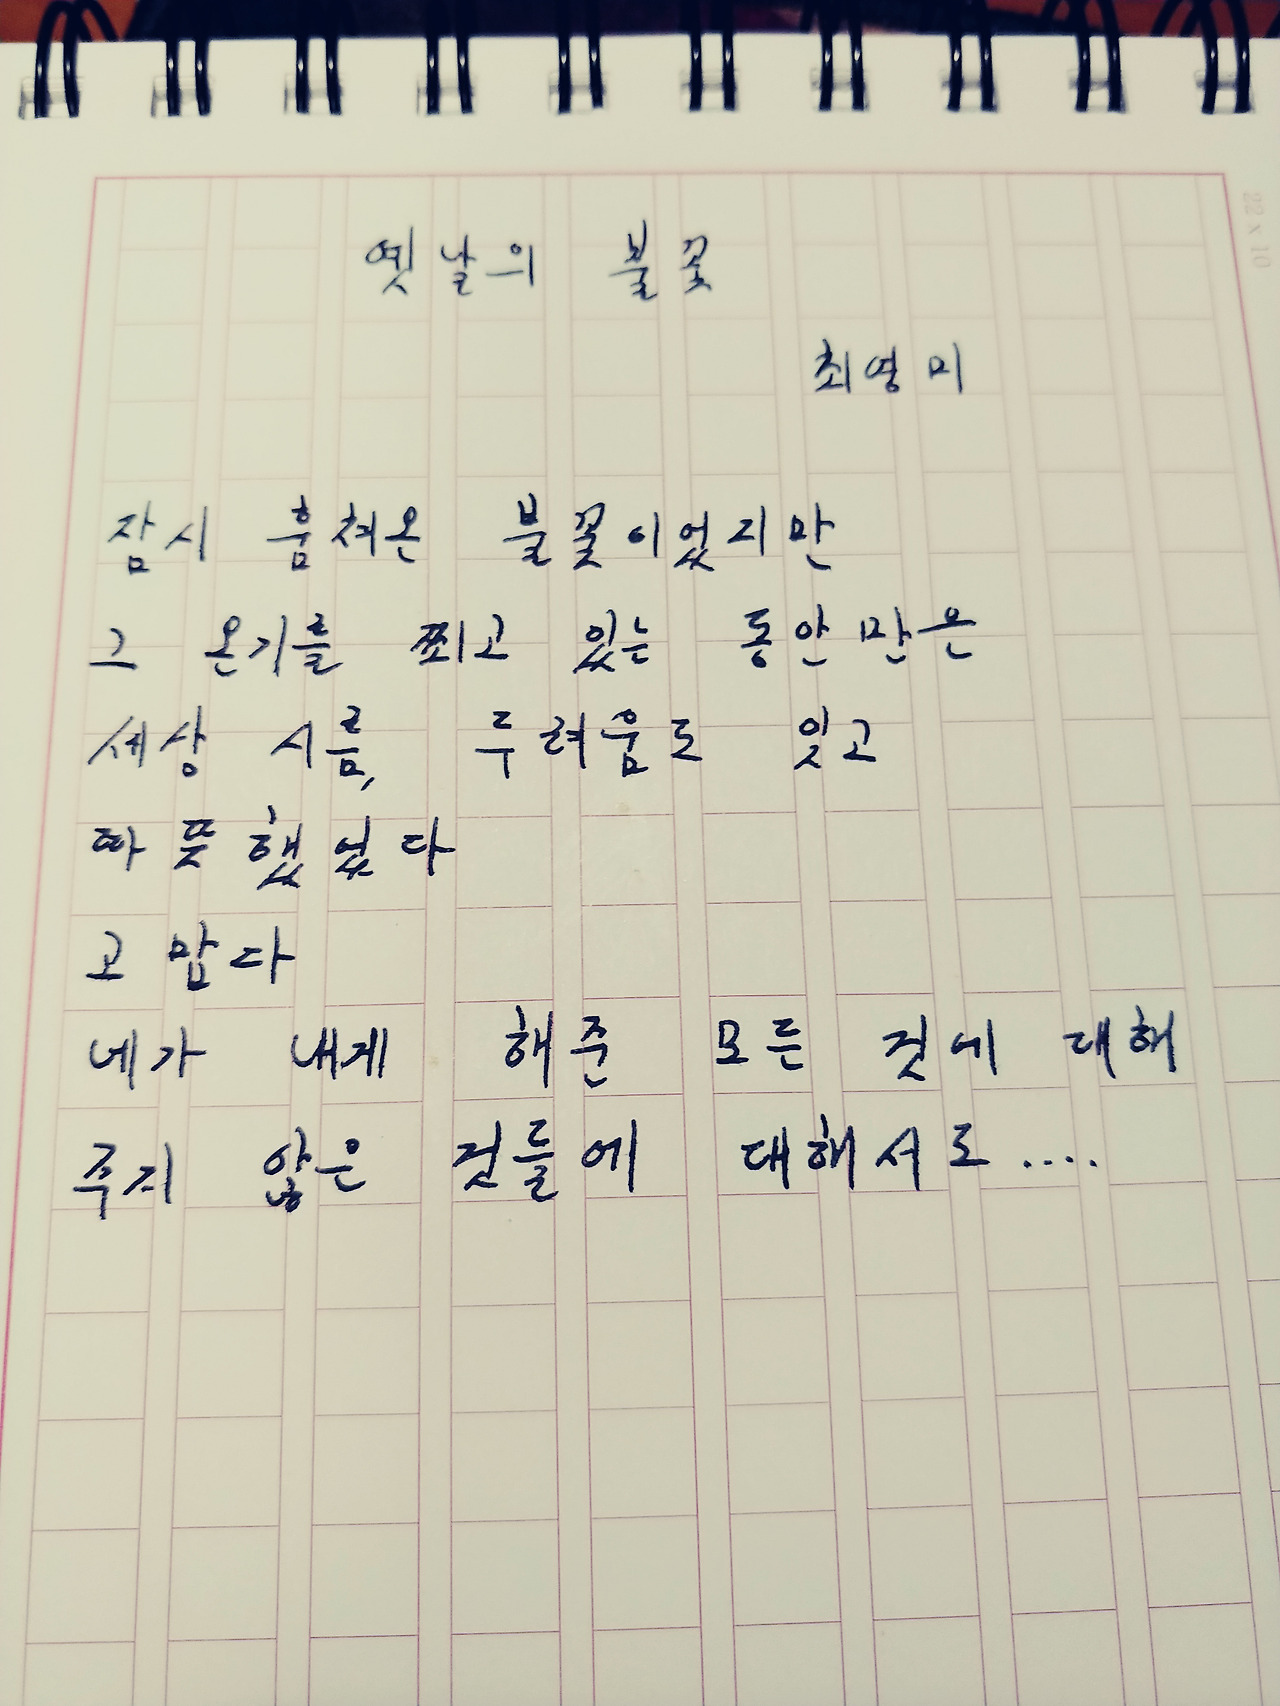 옛날의 불꽃
최영미
잠시 훔쳐온 불꽃이었지만
그 온기를 쬐고 있는 동안만은
세상 시름, 두려움도 잊고
따뜻했었다
고맙다
네가 내게 해준 모든 것에 대해
주지 않은 것들에 대해서도....
22 x 10